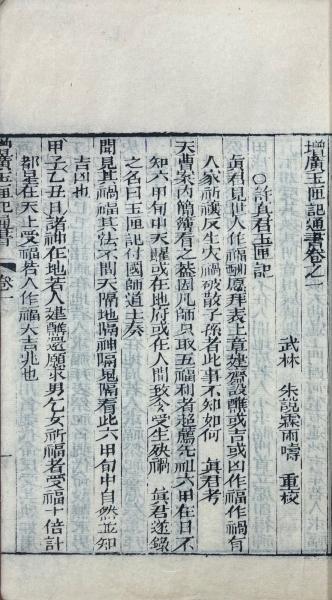 增廣玉匣記通書卷之一
武林 朱說霖雨疇 重校
○許真君玉匣記
真君見世人作福酬愿拜表上章建齋設醮或吉或凶作福作禍有
人家祈禳反生大禍破散子孫者此事不知如何 真君考
天曹案內簡簿看之蓋因凡師只取五福利者超薦先祖六甲在日不
知六甲旬中天曜或在地府或在人間致令受生殃禍 真君遂錄
之名曰玉匣記付國師道士奏
聞見其禍福其法不問天隔地隔神隔鬼隔看此六甲旬中自然並知
吉凶也
甲子乙丑日諸神在地若人建醮還願求男乞女祈福者受福十倍計
都星在天上受福若人作福大吉兆也
增廣玉匣記通書 卷一 一